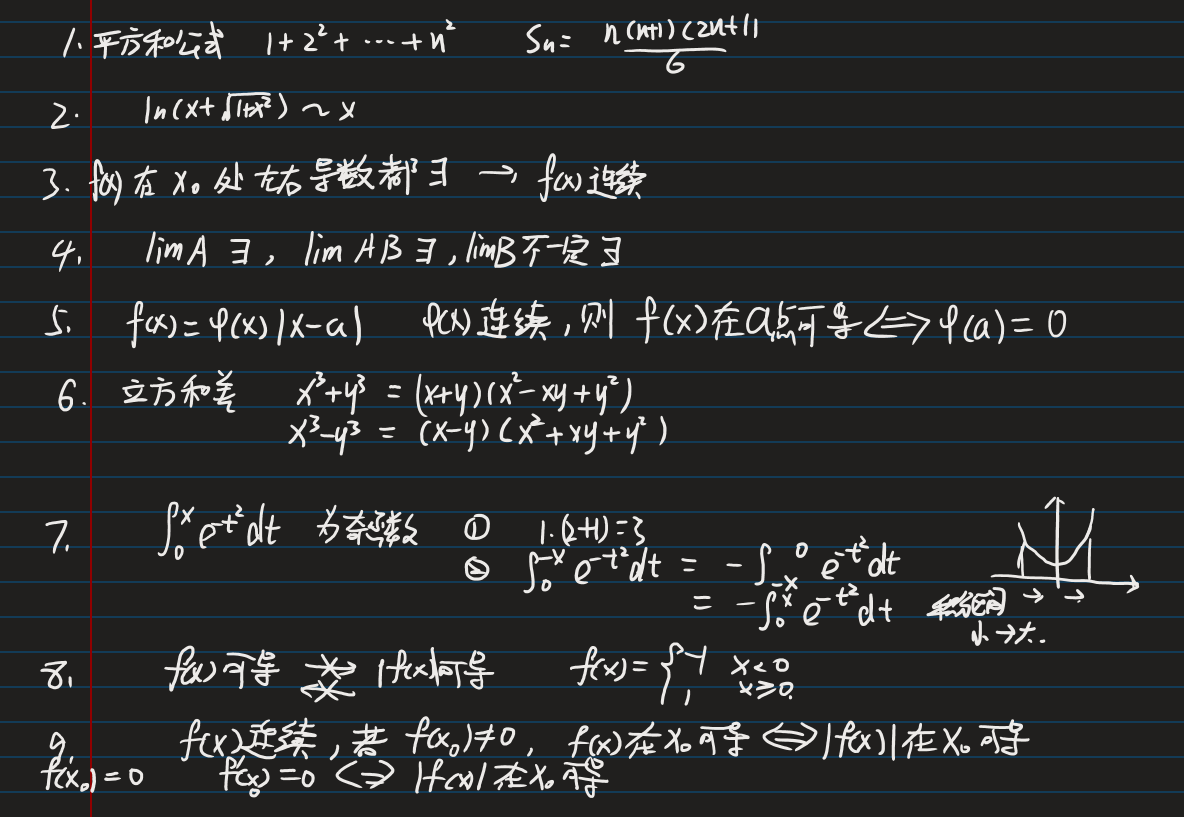 1. 平方和公式 1+2²+⋯+n² Sn= n(n+1)(2n+1)/6
2. ln(x+√(1+x²)) ~ x
3. f(x)在x₀处左右导数都∃ → f(x)连续
4. limA ∃, limAB ∃, limB不一定∃
5. f(x)=φ(x)|x-a| φ(x)连续,则 f(x)在a点可导⟺φ(a)=0
6. 立方和差 x³+y³ = (x+y)(x²-xy+y²)
x³-y³ = (x-y)(x²+xy+y²)
7. ∫₀ˣ e^(-t²)dt 为奇函数 ① 1.(2+1)=3
② ∫₀^(-x) e^(-t²)dt = -∫_(-x)^0 e^(-t²)dt
= -∫₀ˣ e^(-t²)dt 积分区间 → →
小→大.
8. f(x)可导 ⇏ |f(x)|可导 f(x)={-1 x<0
⇍ 1 x≥0
9. f(x)连续,若 f(x₀)≠0, f(x)在x₀可导⟺|f(x)|在x₀可导
f(x₀)=0 f'(x₀)=0 ⟺ |f(x)|在x₀可导